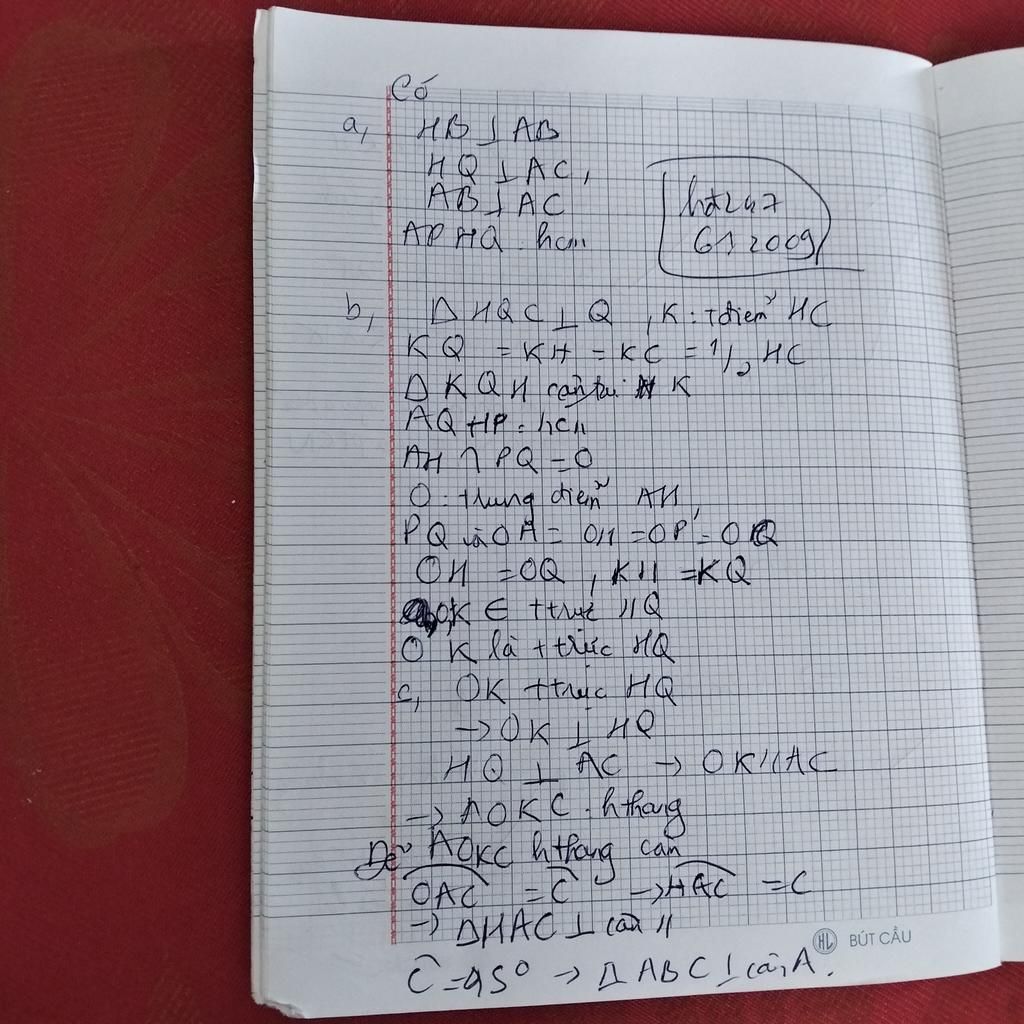 Có
a, HB ⊥ AB
HQ ⊥ AC,
AB ⊥ AC
APHQ : hcn
hd247
612009
b, Δ HQC ⊥ Q , K : tđiểm HC
KQ = KH = KC = 1/2 HC
Δ KQH cân tại K
AQHP : hcn
AH ∩ PQ = O
O : trung điểm AH,
PQ và OA = OH = OP = OQ
OH = OQ , KH = KQ
O,K ∈ ttrực HQ
OK là ttrực HQ
c, OK ttrực HQ
→ OK ⊥ HQ
HQ ⊥ AC → OK // AC
→ AOKC : hthang
Để AOKC hthang cân
OAC = C → HAC = C
→ ΔHAC ⊥ cân H
C = 45° → Δ ABC ⊥ cân A.
HL BÚT CẦU